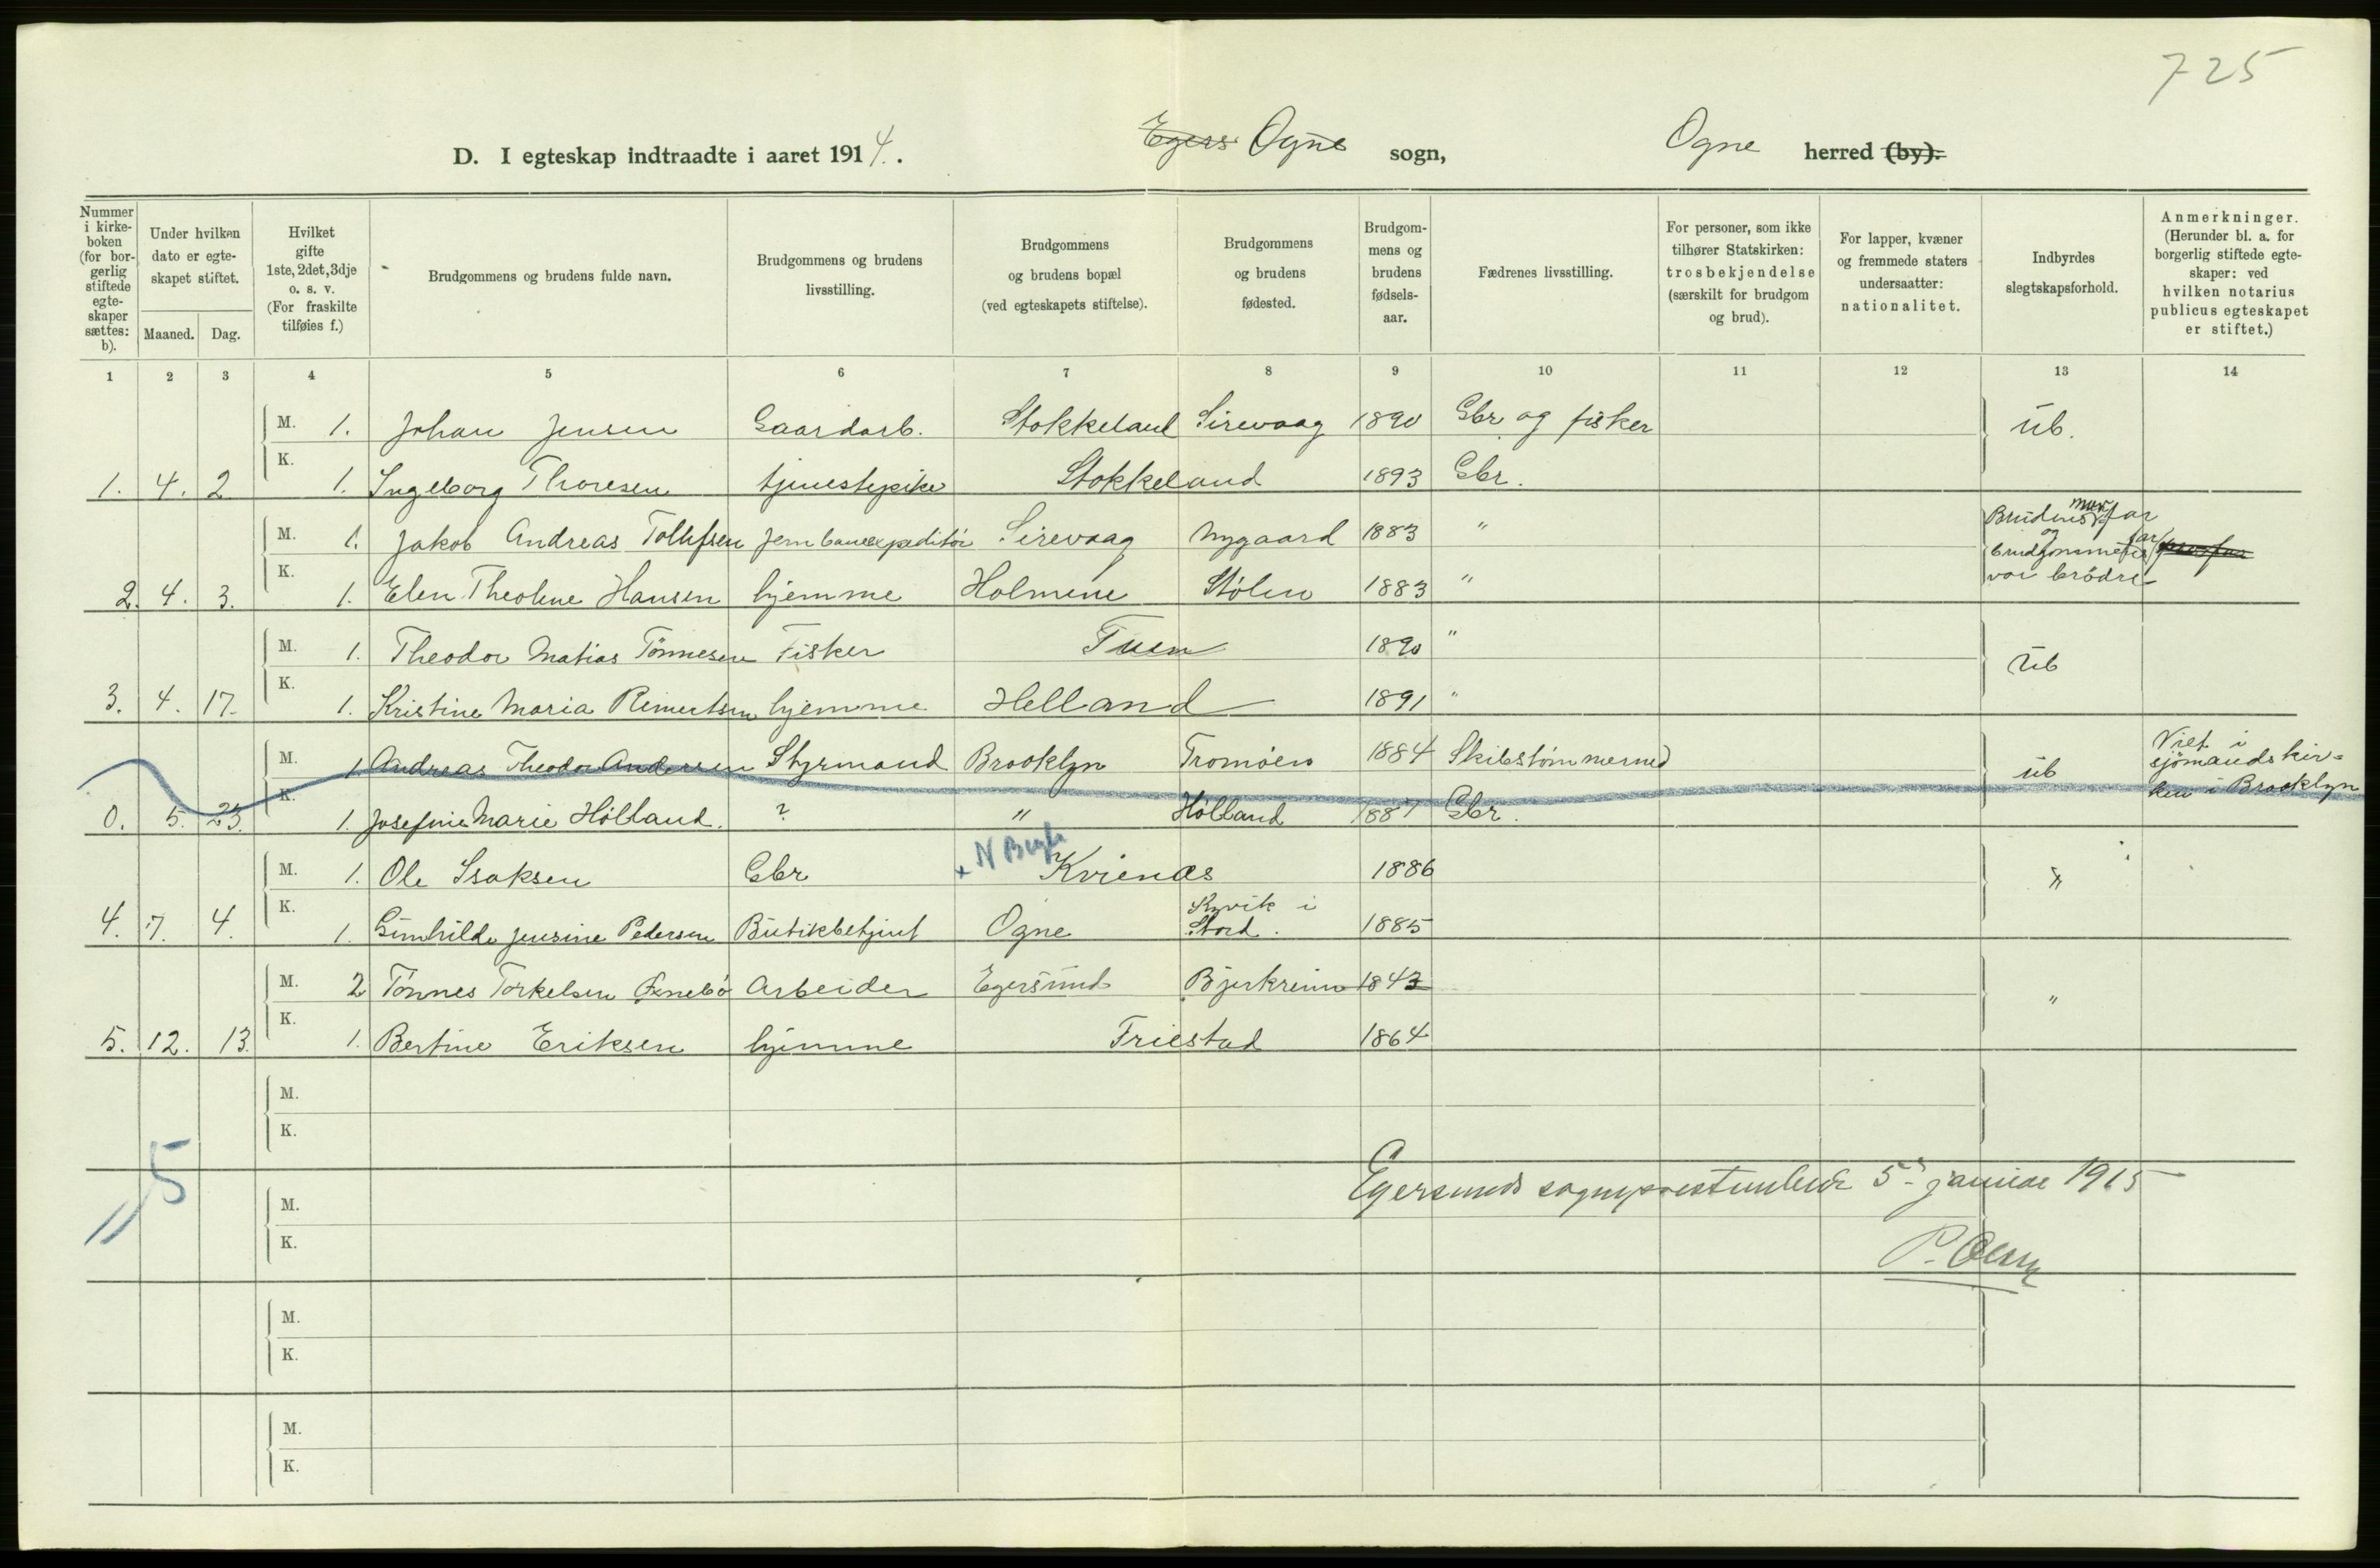 725
D. I egteskap indtraadte i aaret 1914. Egers Ogne sogn, Ogne herred (by).
Nummer i kirkeboken (for borgerlig stiftede egteskaper sættes: b).
Under hvilken dato er egteskapet stiftet.
Maaned. Dag.
Hvilket gifte 1ste, 2det, 3dje o. s. v. (For fraskilte tilføies f.)
Brudgommens og brudens fulde navn.
Brudgommens og brudens livsstilling.
Brudgommens og brudens bopæl (ved egteskapets stiftelse).
Brudgommens og brudens fødested.
Brudgommens og brudens fødselsaar.
Fædrenes livsstilling.
For personer, som ikke tilhører Statskirken: trosbekjendelse (særskilt for brudgom og brud).
For lapper, kvæner og fremmede staters undersaatter: nationalitet.
Indbyrdes slegtskapsforhold.
Anmerkninger. (Herunder bl. a. for borgerlig stiftede egteskaper: ved hvilken notarius publicus egteskapet er stiftet.)
1 2 3 4 5 6 7 8 9 10 11 12 13 14
M. 1. Johan Jensen Gaardarb. Stokkeland Sirevaag 1890 Gbr og fisker ub.
1. 4. 2 K. 1. Ingeborg Thoresen tjenestepike Stokkeland 1893 Gbr.
M. 1. Jakob Andreas Tollefsen Jernbaneexpeditør Sirevaag Nygaard 1883 " Brudens morfar
og
brudgommens far
var brødre
2. 4. 3. K. 1. Elen Theoline Hansen hjemme Holmene Stølen 1883 "
M. 1. Theodor Matias Tønnesen Fisker Tuen 1890 " ub
3. 4. 17. K. 1. Kristine Maria Reinertsen hjemme Helland 1891 "
M. 1 Andreas Theodor Andersen Styrmand Brooklyn Tromøen 1884 Skibstømmermd ub Viet i
sjømandskir-
ken i Brooklyn
0. 5. 23. K. 1. Josefine Marie Hølland. ? " Hølland 1887 Gbr.
+ N
M. 1. Ole Isaksen Gbr Kvienæs 1886 "
4. 7. 4. K. 1. Gunhilde Jensine Petersen Butikbetjent Ogne i
Stord. 1885
M. 2 Tønnes Torkelsen Arbeider Egersund Bjerkreim 1843 "
5. 12. 13. K. 1. Bertine Eriksen hjemme Friestad 1864
M.
K.
5
Egersunds sogneprestembede 5. januar 1915
M.
K.
P. Olsen
M.
K.
M.
K.